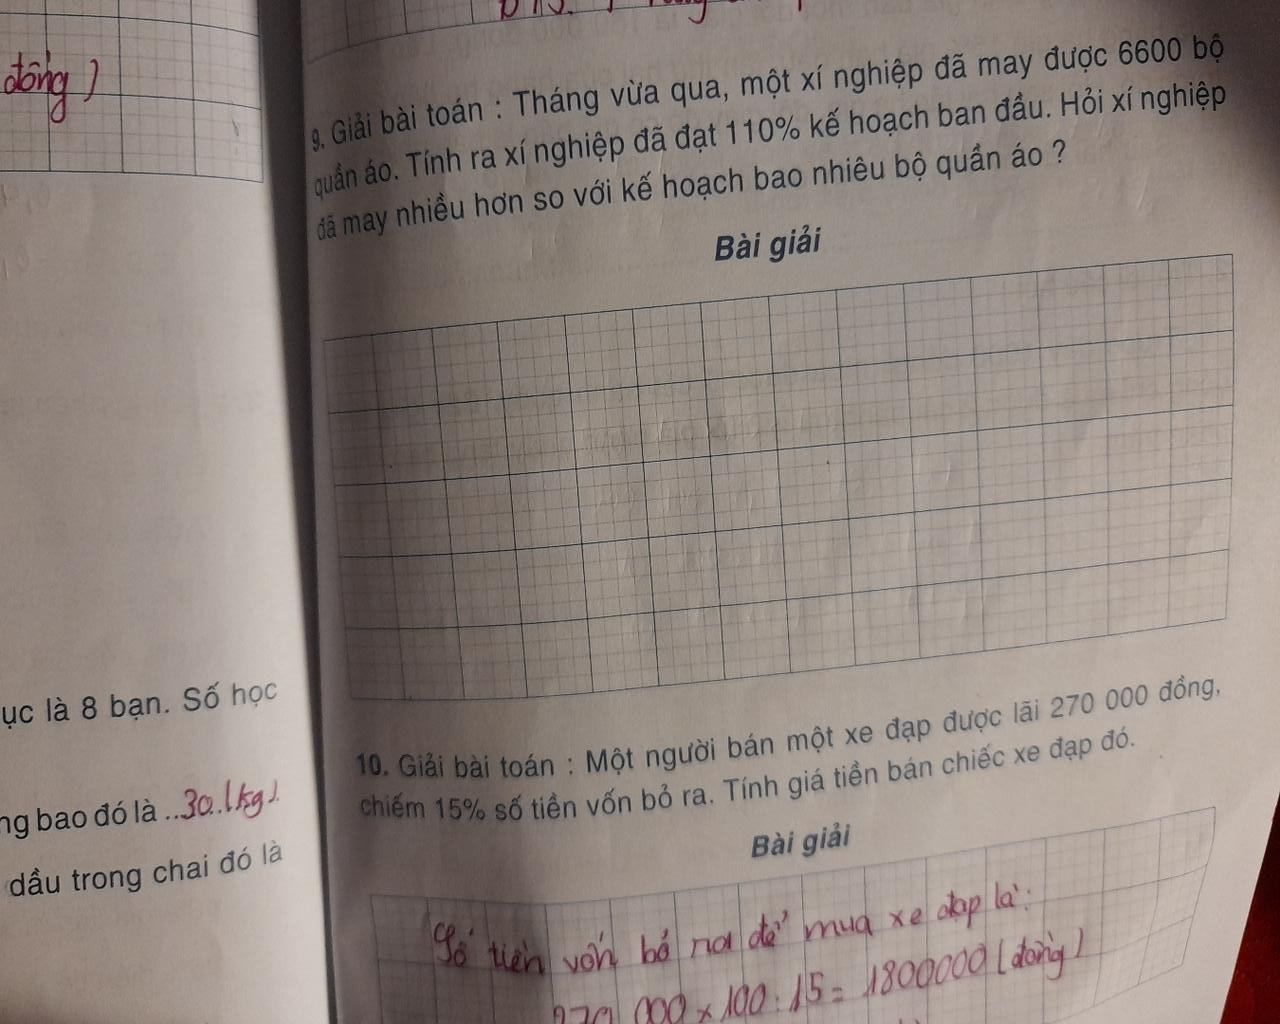 đồng)
9. Giải bài toán : Tháng vừa qua, một xí nghiệp đã may được 6600 bộ
quần áo. Tính ra xí nghiệp đã đạt 110% kế hoạch ban đầu. Hỏi xí nghiệp
đã may nhiều hơn so với kế hoạch bao nhiêu bộ quần áo ?
Bài giải
ục là 8 bạn. Số học
ng bao đó là ..30.(kg).
dầu trong chai đó là
10. Giải bài toán : Một người bán một xe đạp được lãi 270 000 đồng,
chiếm 15% số tiền vốn bỏ ra. Tính giá tiền bán chiếc xe đạp đó.
Bài giải
Số tiền vốn bỏ ra để mua xe đạp là:
270 000 x 100 : 15 = 1800000 (đồng)